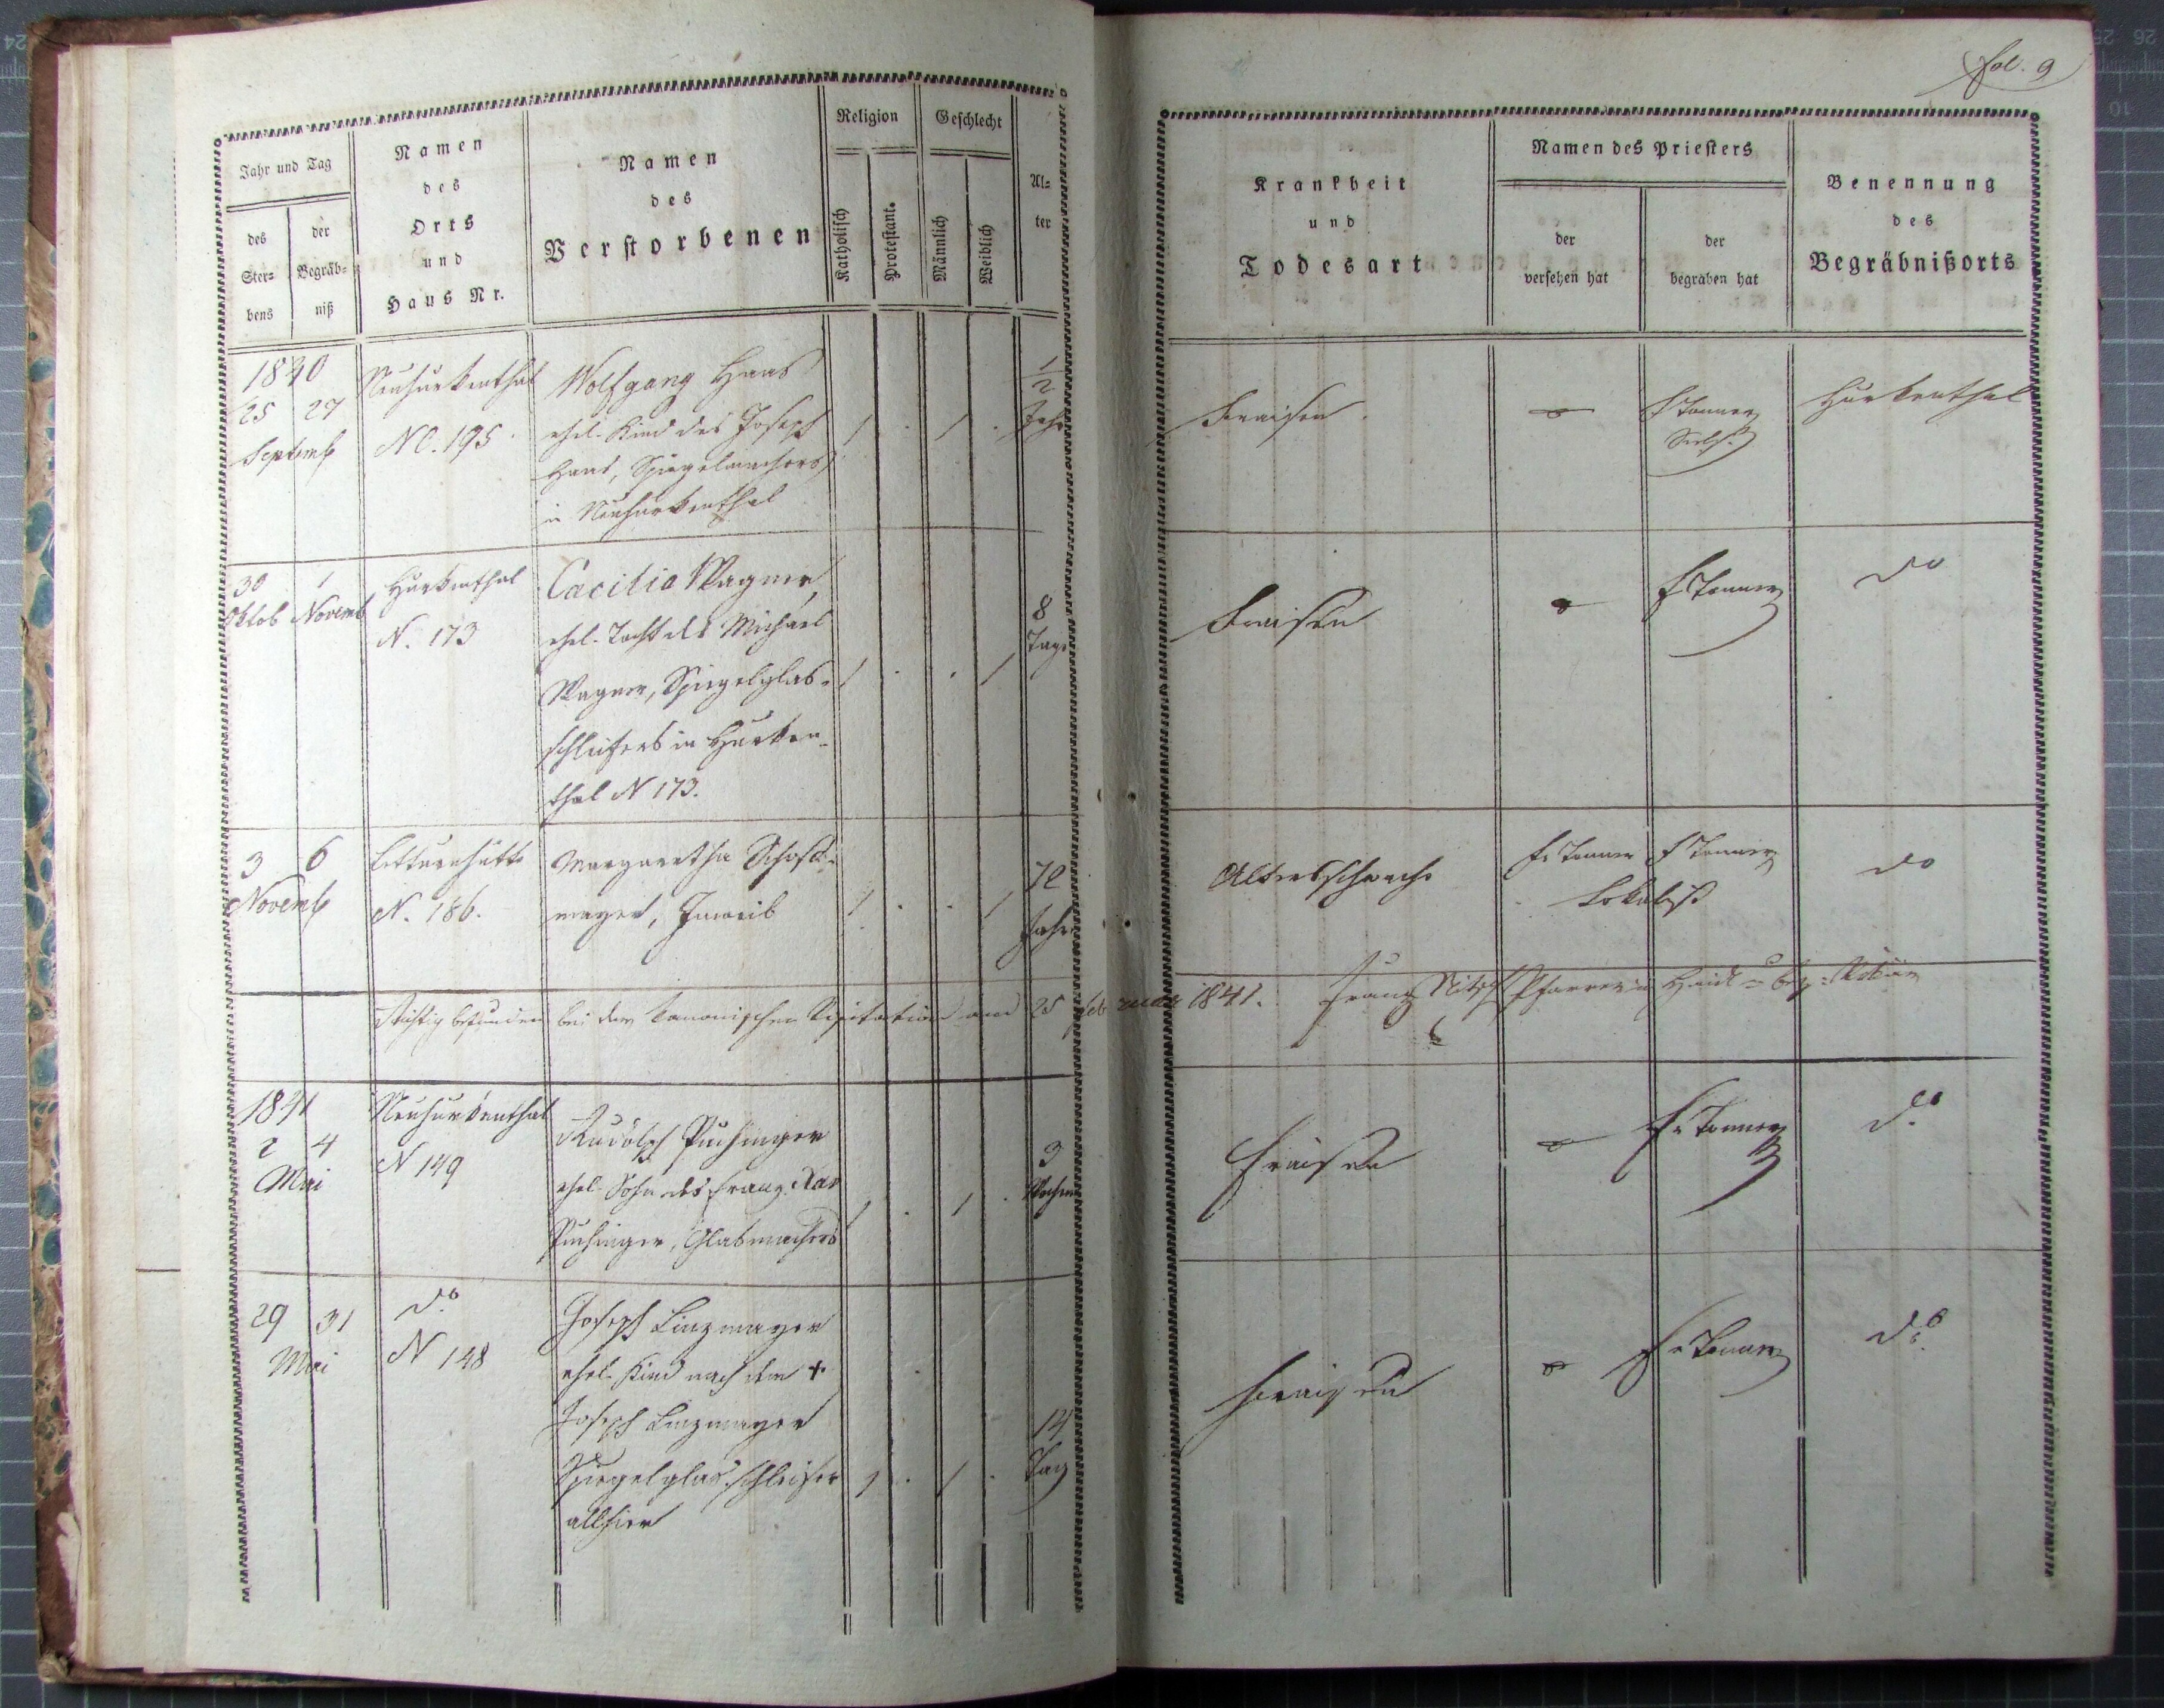 fol. 9
Jahr und Tag
des Ster= bens
der Begräb= niß
Namen
des
Orts
und
Haus Nr.
Namen
des
Verstorbenen
Religion
Katholisch
Protestant.
Geschlecht
Männlich
Weiblich
Al=
ter
Krankheit
und
Todesart
Namen des Priesters
der
versehen hat
der
begraben hat
Benennung
des
Begräbnißorts
1840
25 27
Septemb
Neuhurkenthal
NC. 195
Wolfgang Haas
ehel. Kind des Joseph
Haas, Spiegelmachers
in Neuhurkenthal
1 . 1 .
1/2
Jahr
Fraisen
Fr Tanner
Hurkenthal
30 1
Oktob Novemb
Hurkenthal
N. 173
Cacilia Wagner,
ehel. Tocht des Michael
Wagner, Spiegelglas=
schleifers in Hurken=
thal N 173.
1 . . 1
8
Tage
Fraisen
Fr Tanner
do
3 6
Novemb
N. 186.
Margaretha
mayer, Inweib
1 . . 1
72
Jahr
Altersschwäche
Fr Tanner Fr Tanner
Lokalist
do
Richtig befunden bei der kanonischen Visitation am 25 Februar 1841. Franz Nitsch Pfarrer in Haid
1841
2 4
Mai
Neuhurkenthal
N 149
Rudolph Puchinger
ehel. Sohn des Franz Xav
Puchinger, Glasmachers
1 . 1 .
3
Wochen
Fraisen
Fr Tanner
do
29 31
Mai
do
N 148
Joseph Linzmayer
ehel. Kind nach dem +
Joseph Linzmayer
Spiegelglasschleifer
allhier
1 . 1 .
14
Tag
Fraisen
Fr Tanner
do